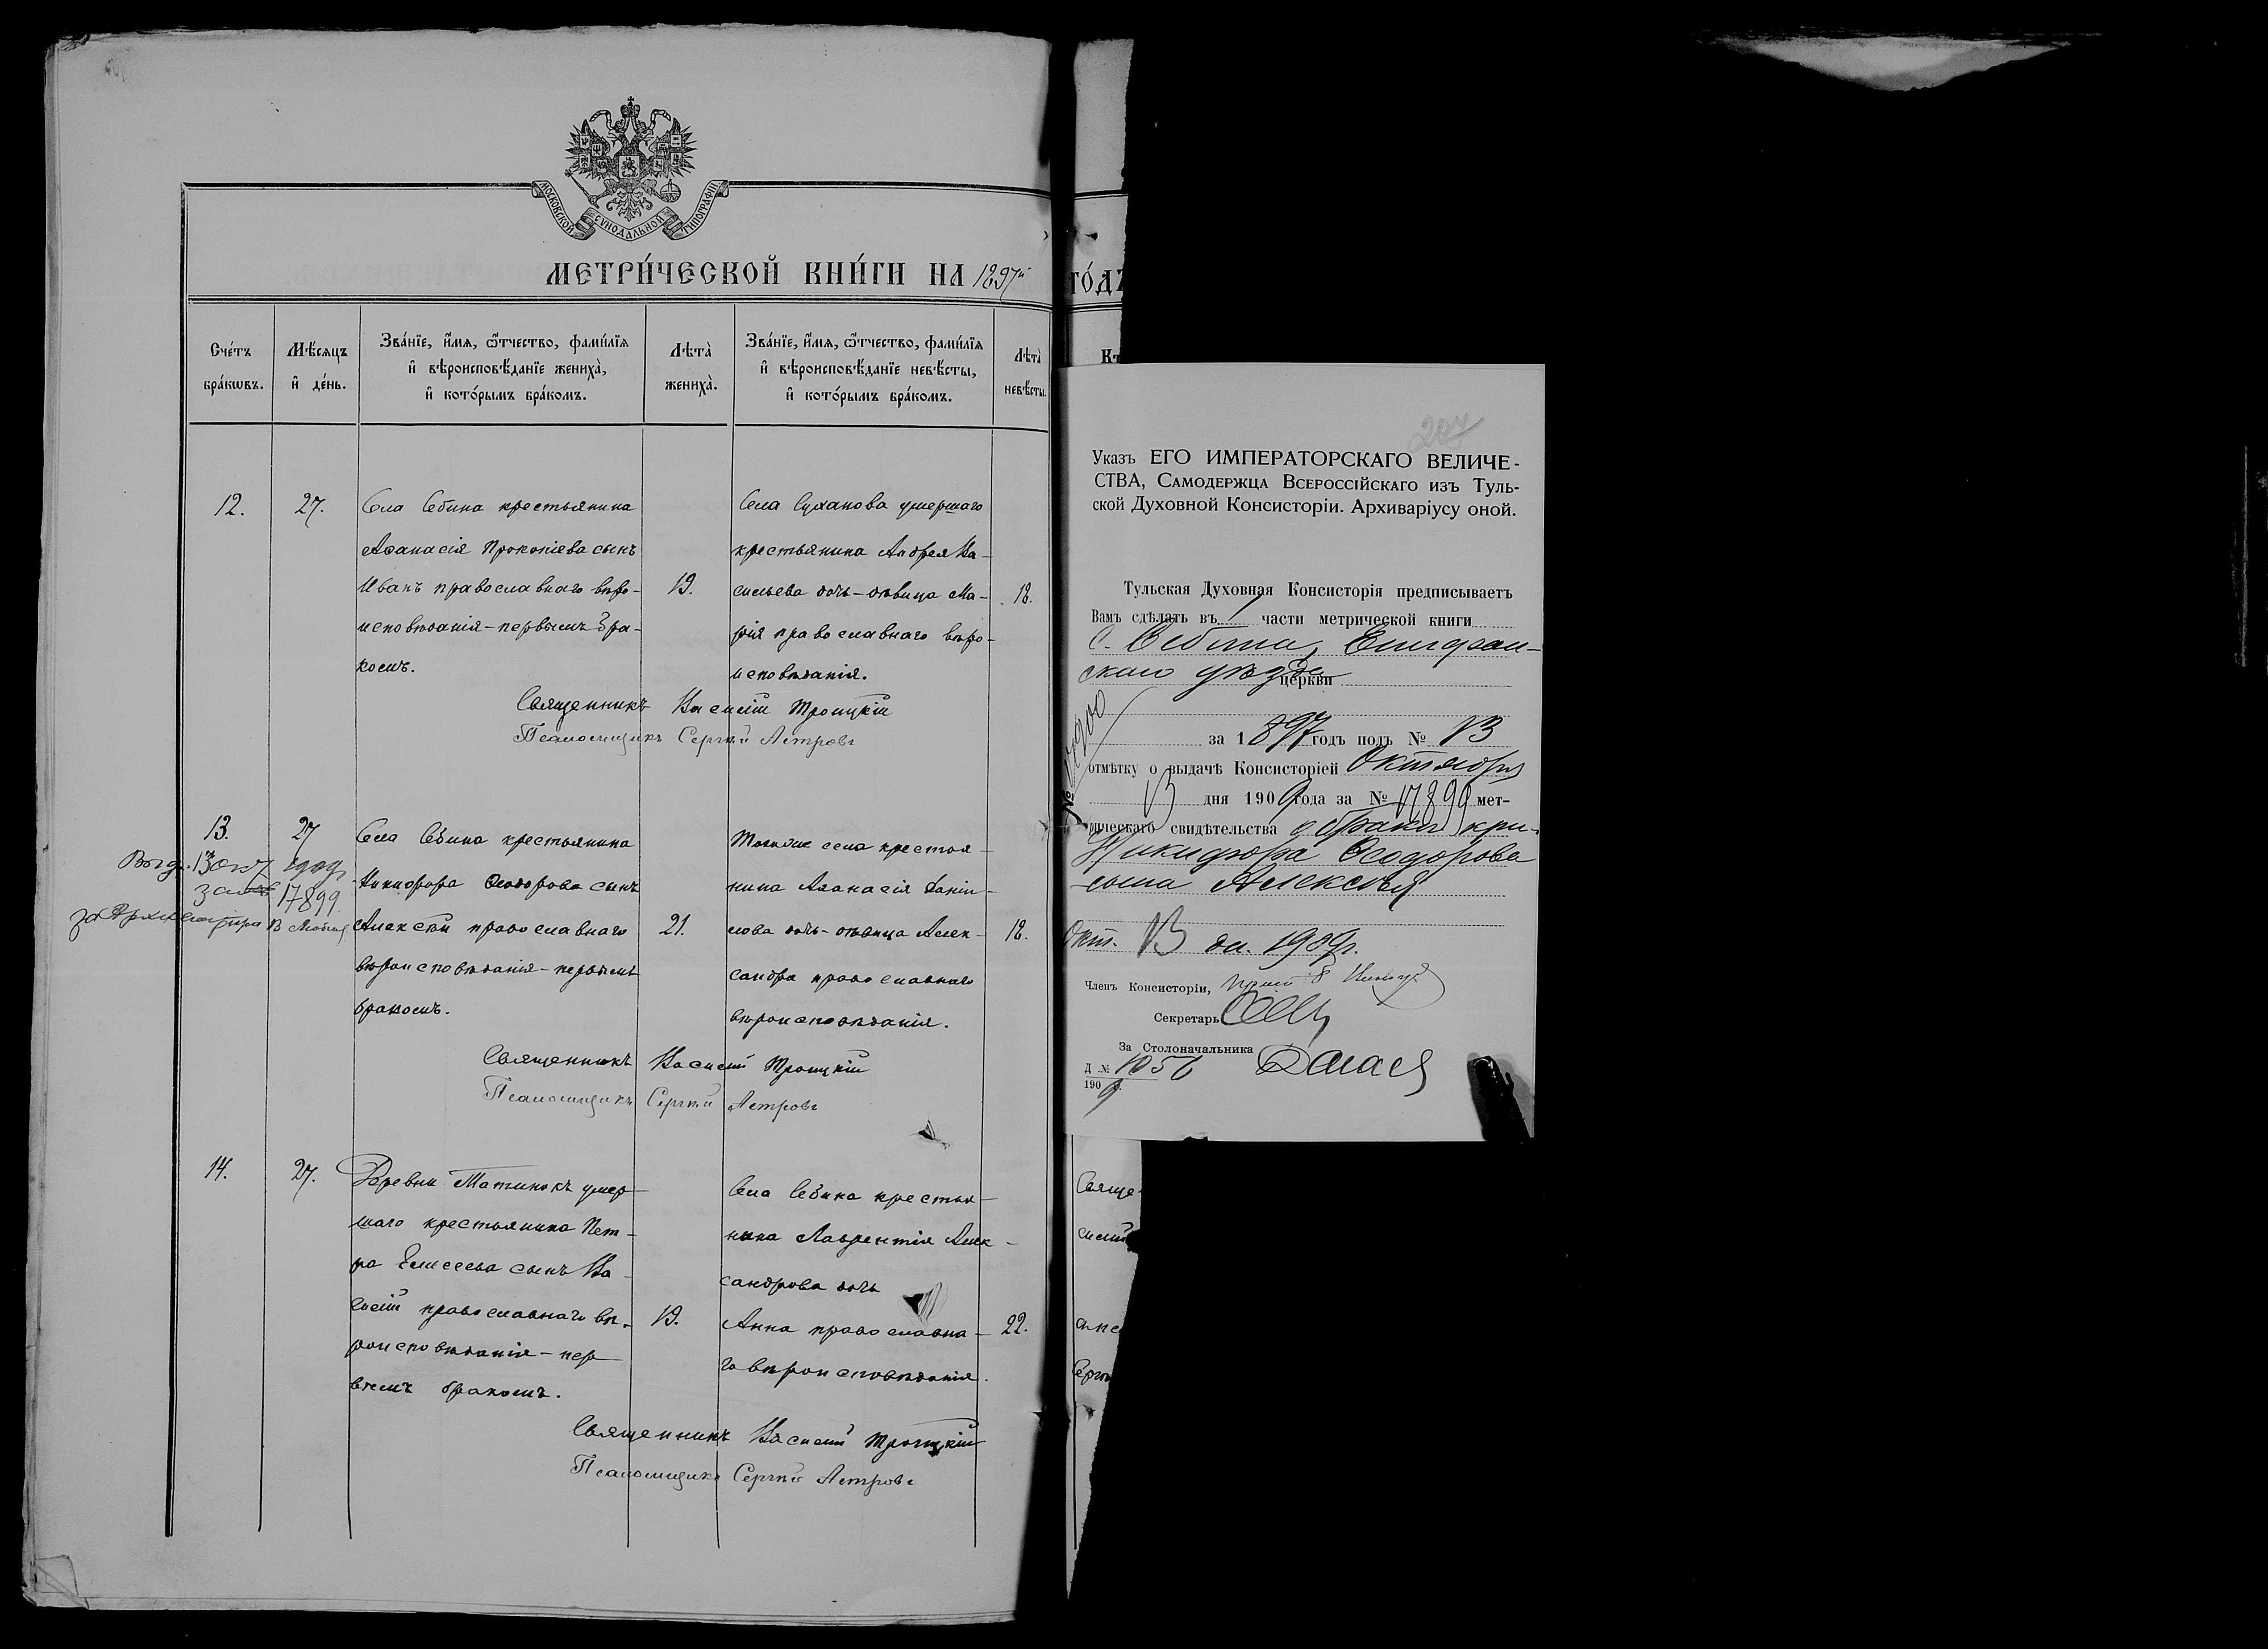 МОСКОВСКОЙ СѴНОДАЛЬНОЙ ТИПОГРАФІИ
МЕТРИ́ЧЕСКОЙ КНИ́ГИ НА 1897й ГО́ДЪ
Сче́тъ бра́кѡвъ.
Мѣ́сяцъ и҆ де́нь.
Зва́нїе, и҆́мѧ, ѻ҆́тчество, фамѝлїѧ
и҆ вѣроисповѣ́данїе жениха̀,
и҆ кото́рымъ бра́комъ.
Лѣта̀ жениха̀.
Зва́нїе, и҆́мѧ, ѻ҆́тчество, фамѝлїѧ
и҆ вѣроисповѣ́данїе невѣ́сты,
и҆ кото́рымъ бра́комъ.
Лѣта̀ невѣ́сты.
12.
27.
Села Себина крестьянина
Аѳанасія Прокопіева сынъ
Иванъ православнаго вѣро-
исповѣданія – первымъ бра-
комъ.
19.
Села Суханова умершаго
крестьянина Андрея Ва-
сильева дочь – дѣвица Ма-
рія православнаго вѣро-
исповѣданія.
18.
Священникъ Василій Троицкій
Псаломщикъ Сергѣй Петровъ
13.
27
Выд. 13 окт 1909
за № 17899
за Архиваріуса
Села Себина крестьянина
Никифора Ѳеодорова сынъ
Алексѣй православнаго
вѣроисповѣданія – первымъ
бракомъ.
21.
Тогоже села крестья-
нина Аѳанасія Даніи-
лова дочь – дѣвица Алек-
сандра православнаго
вѣроисповѣданія.
18.
Священникъ Василій Троицкій
Псаломщикъ Сергѣй Петровъ
14.
27.
Деревни Матинокъ умер-
шаго крестьянина Пет-
ра Елисеева сынъ Ва-
силій православнаго вѣ-
роисповѣданія – пер-
вымъ бракомъ.
19.
Села Себина крестья-
нина Лаврентія Алек-
сандрова дочь
Анна православна-
го вѣроисповѣданія.
22.
Священникъ Василій Троицкій
Псаломщикъ Сергѣй Петровъ
Указъ ЕГО ИМПЕРАТОРСКАГО ВЕЛИЧЕ-
СТВА, Самодержца Всероссійскаго изъ Туль-
ской Духовной Консисторіи. Архиваріусу оной.
Тульская Духовная Консисторія предписываетъ
Вамъ сдѣлать въ 1 части метрической книги
с. Себина, Епифан-
скаго уѣзда
церкви
за 1897 годъ подъ № 13
отмѣтку о выдачѣ Консисторіей Октября
13 дня 1909 года за № 17899 мет-
рическаго свидѣтельства о бракѣ кр-на
Никифора Ѳеодорова
сына Алексѣя
№ 17900
Окт. 13 дн. 1909 г.
Членъ Консисторіи,
Секретарь
За Столоначальника
Д. № 1056
1909 г.
Свяще-